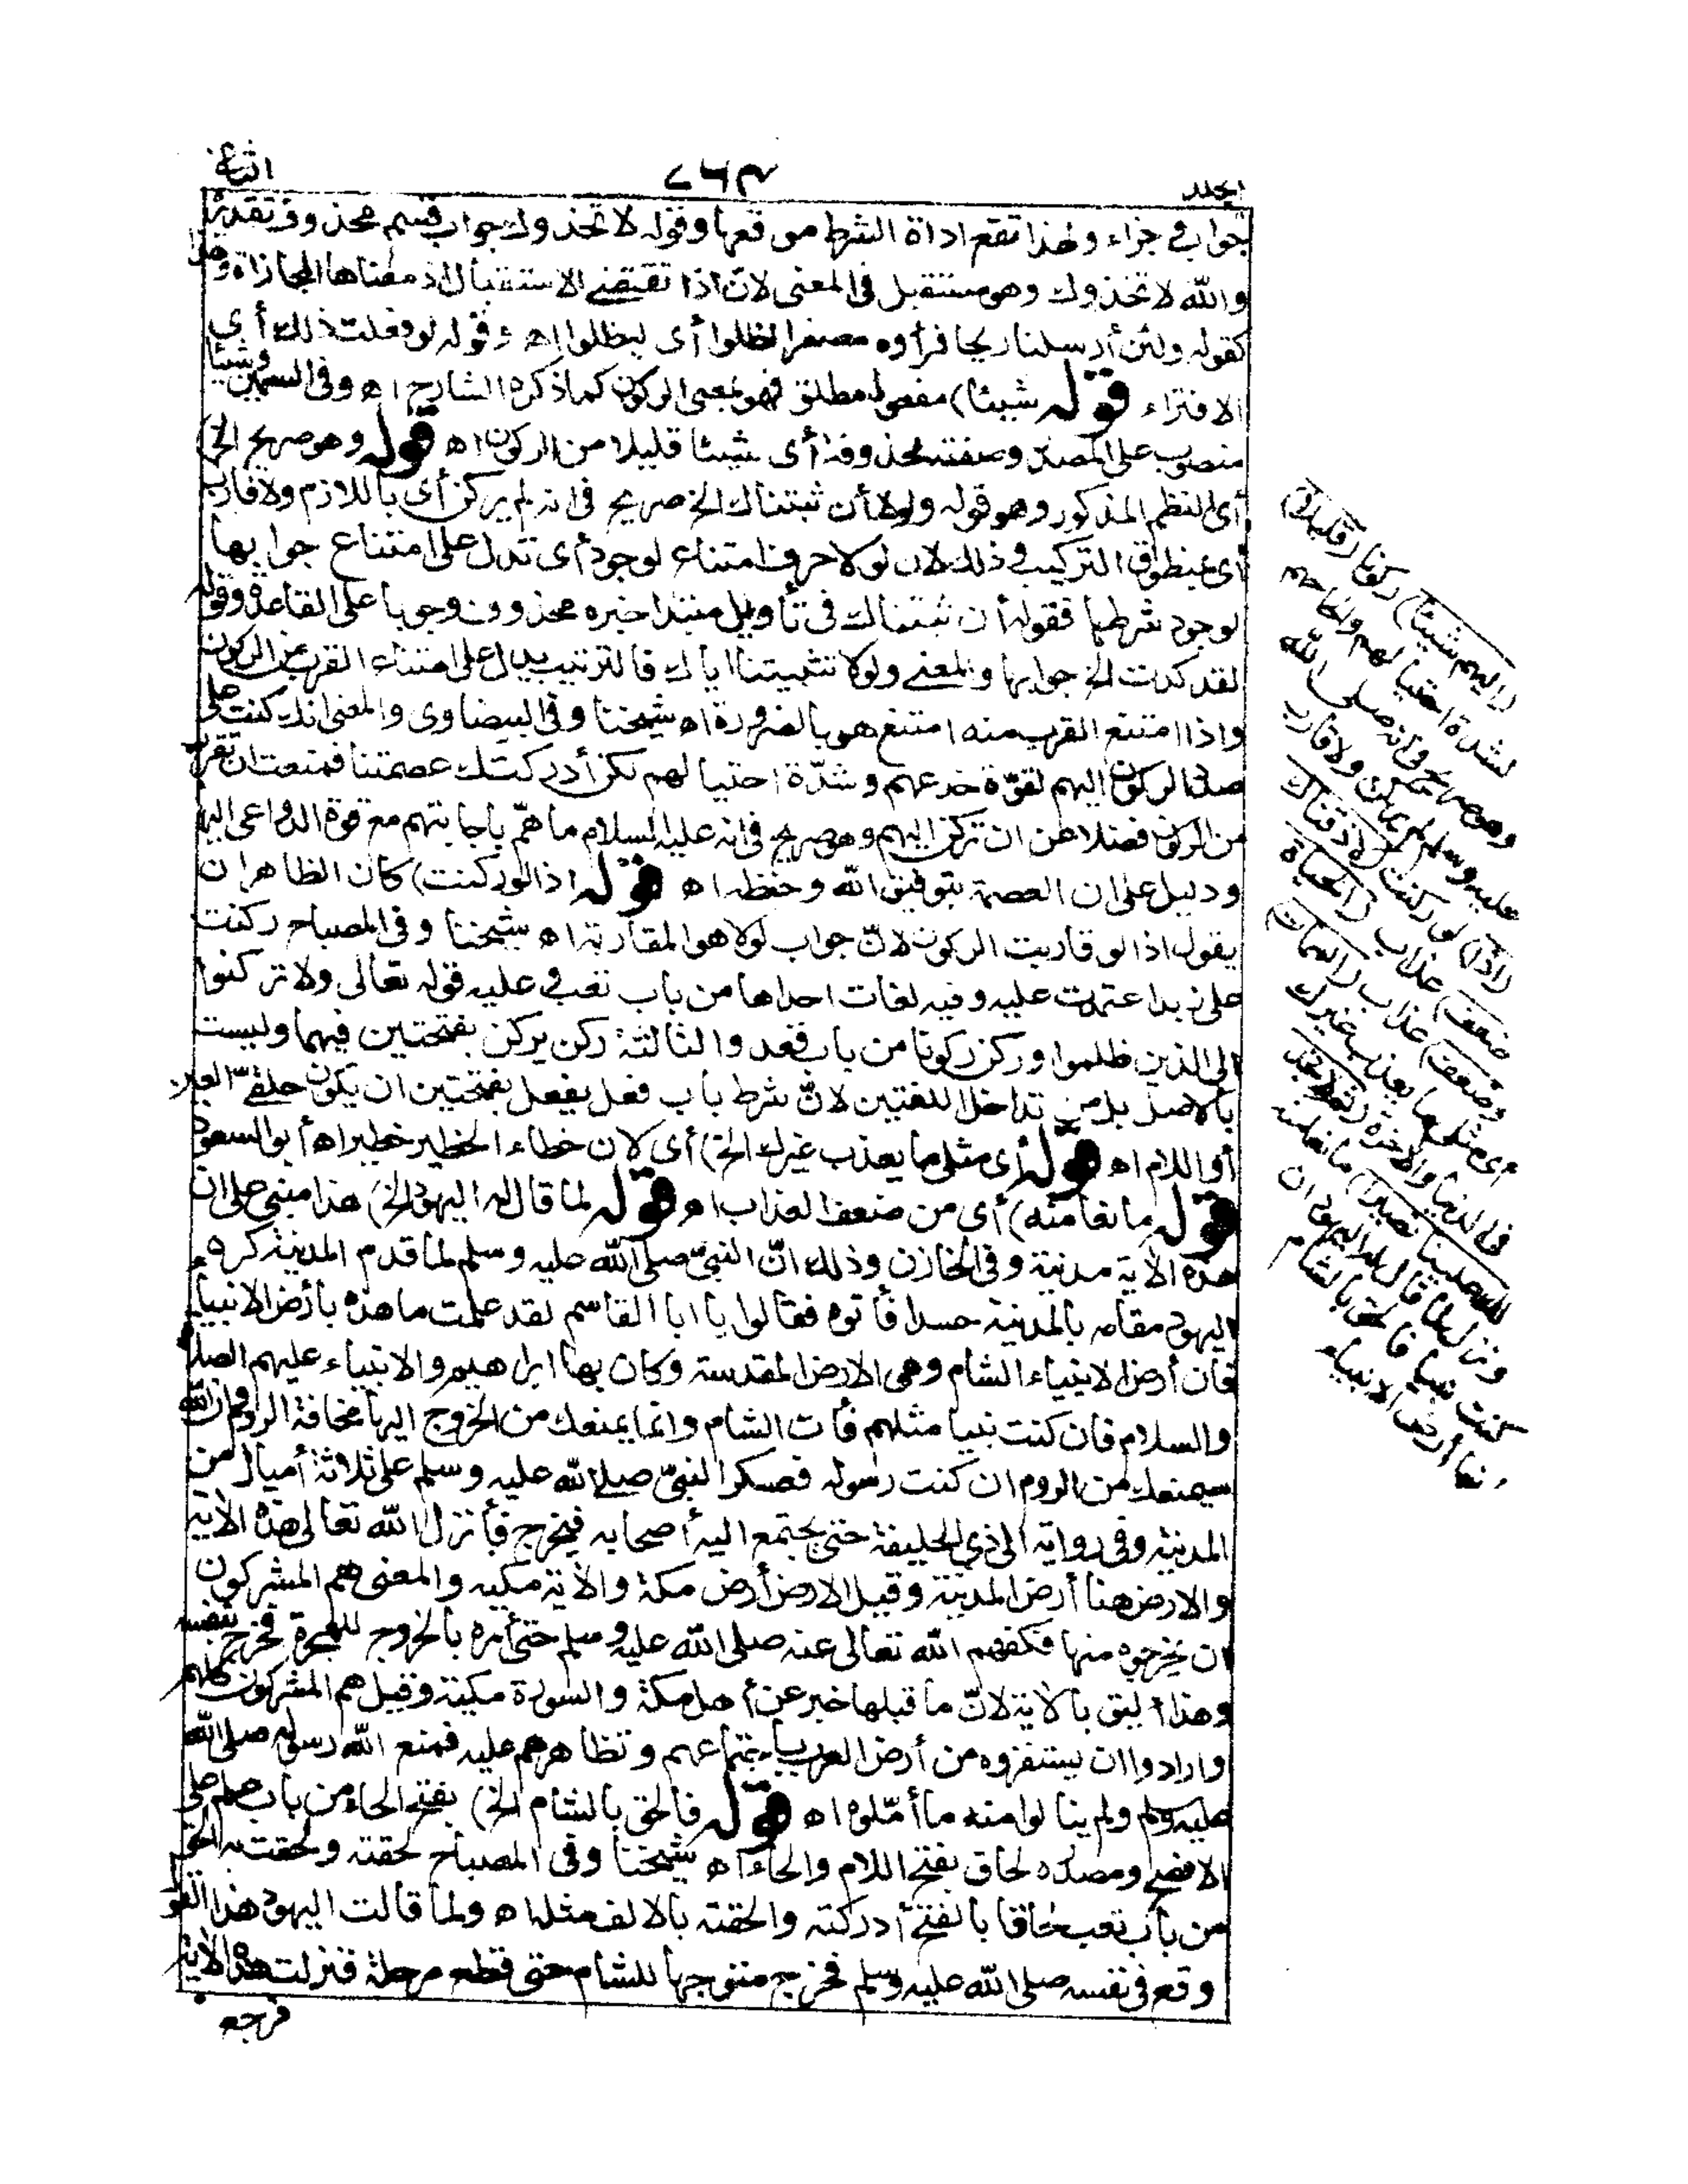 المجلد
٧٦٣
الثانى
جواب وجزاء ولهذا تقع اداة الشرط موقعها وقوله لاتخذوك جواب قسم محذوف تقديره
والله لاتخذوك وهو مستقبل فى المعنى لان اذا تقتضى الاستقبال اذ معناها المجازاة وهذا
كقوله ولئن أرسلنا ريحا فرأوه مصفرا لظلوا أى ليظلوا اه وقوله لو فعلت ذلك أى
الافتراء قوله شيئا) مفعول مطلق فهو بمعنى الركون كما ذكره الشارح اه وفى السمين وشيئا
منصوب على المصدر وصفته محذوفة أى شيئا قليلا من الركون اه قوله وهو صريح الخ)
أى النظم المذكور وهو قوله ولولا أن ثبتناك الخ صريح فى انه لم يركن أى باللازم ولا قارب
أى بمنطوق التركيب وذلك لان لولا حرف امتناع لوجود أى تدل على امتناع جوابها
لوجود شرطها فقوله أن ثبتناك فى تأويل مبتدا خبره محذوف وجوبا على القاعدة وقوله
لقد كدت الخ جوابها والمعنى ولولا تثبيتنا اياك فالترتيب يدل على امتناع القرب من الركون
واذا امتنع القرب منه امتنع هو بالضرورة اه شيخنا وفى البيضاوى والمعنى انك كنت على
صدد الركون اليهم لقوة خدعهم وشدّة احتيالهم لكن أدركتك عصمتنا فمنعت ان تقرب
من الركون فضلا عن ان تركن اليهم وهو صريح فى انه عليه السلام ما همّ باجابتهم مع قوة الدواعى اليها
ودليل على ان العصمة بتوفيق الله وحفظه اه قوله اذا لو ركنت) كان الظاهر ان
يقول اذا لو قاربت الركون لانّ جواب لولا هو المقاربة اه شيخنا وفى المصباح ركنت
على زيد اعتمدت عليه وفيه لغات احداها من باب تعب وعليه قوله تعالى ولا تركنوا
الى الذين ظلموا وركن ركونا من باب قعد والثالثة ركن يركن بفتحتين فيهما وليست
بالاصل بل من تداخل اللغتين لانّ شرط باب فعل يفعل بفتحتين ان يكون حلقى العين
أو اللام اه قوله أى مثلى ما يعذب غيرك الخ) أى لان خطاء الخطير خطير اه أبو السعود
قوله مانعا منه) أى من ضعف العذاب اه قوله لما قال له اليهود الخ) هذا مبنى على ان
هذه الآية مدنية وفى الخازن وذلك انّ النبىّ صلى الله عليه وسلم لما قدم المدينة كره
اليهود مقامه بالمدينة حسدا فأتوه فقالوا يا ابا القاسم لقد علمت ما هذه بأرض الانبياء
فان أرض الانبياء الشام وهى الارض المقدسة وكان بها ابراهيم والانبياء عليهم الصلاة
والسلام فان كنت نبيا مثلهم فأت الشام وانما يمنعك من الخروج اليها مخافة الروم وان الله
سيمنعك من الروم ان كنت رسوله فعسكر النبىّ صلى الله عليه وسلم على ثلاثة أميال من
المدينة وفى رواية الى ذى الحليفة حتى يجتمع اليه أصحابه فيخرج فأنزل الله تعالى هذه الآية
والارض هنا أرض المدينة وقيل الارض أرض مكة والآية مكية والمعنى هم المشركون
ان يخرجوه منها فكفهم الله تعالى عنه صلى الله عليه وسلم حتى أمره بالخروج للهجرة فخرج بنفسه
وهذا أليق بالآية لانّ ما قبلها خبر عن أهل مكة والسورة مكية وقيل هم المشركون كلهم
وارادوا ان يستفزوه من أرض العرب باجتماعهم وتظاهرهم عليه فمنع الله رسوله صلى الله
عليه وسلم ولم ينالوا منه ما أمّلوه اه قوله فالحق بالشام الخ) بفتح الحاء من باب علم على
الافصح ومصدره لحاق بفتح اللام والحاء اه شيخنا وفى المصباح لحقته ولحقت به الحق
من باب تعب لحاقا بالفتح أدركته والحقته بالالف مثله اه ولما قالت اليهود هذا القول
وقع فى نفسه صلى الله عليه وسلم فخرج متوجها للشام حتى قطع مرحلة فنزلت هذه الآية
فرجع
(اليهم شيئا) ركونا (قليلا)
لشدة احتيالهم والحاحهم
وهو صريح فى انه صلى الله
عليه وسلم لم يركن ولا قارب
(اذا) لو ركنت (لاذقناك
ضعف) عذاب (الحياة
وضعف) عذاب (الممات)
أى مثلى ما يعذب غيرك
فى الدنيا والآخرة (ثم لا تجد
لك علينا نصيرا) مانعا منه
ونزل لما قال له اليهود ان
كنت نبيا فالحق بالشام
فانها أرض الانبياء